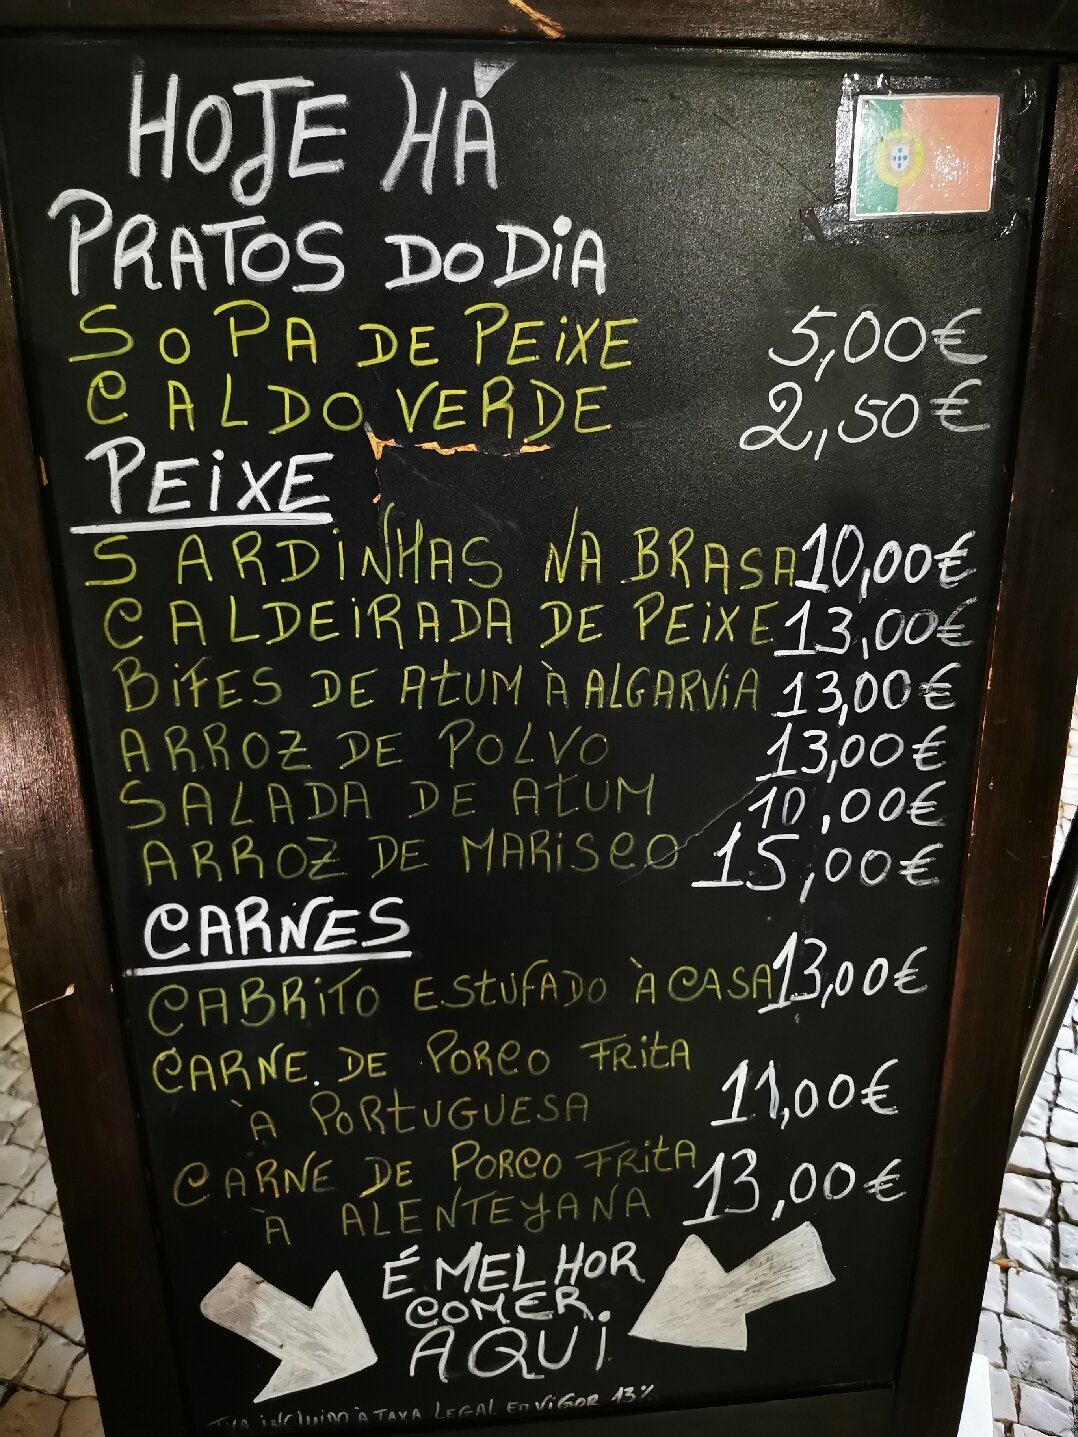 HOJE HÁ
PRATOS DO DIA
SOPA DE PEIXE 5,00€
CALDO VERDE 2,50€
PEIXE
SARDINHAS NA BRASA 10,00€
CALDEIRADA DE PEIXE 13,00€
BIFES DE ATUM À ALGARVIA 13,00€
ARROZ DE POLVO 13,00€
SALADA DE ATUM 10,00€
ARROZ DE MARISCO 15,00€
CARNES
CABRITO ESTUFADO À CASA 13,00€
CARNE. DE PORCO FRITA
À PORTUGUESA 11,00€
CARNE DE PORCO FRITA
À ALENTEYANA 13,00€
É MELHOR
COMER.
AQUI
IVA INCLUIDO À TAXA LEGAL EM VIGOR 13%